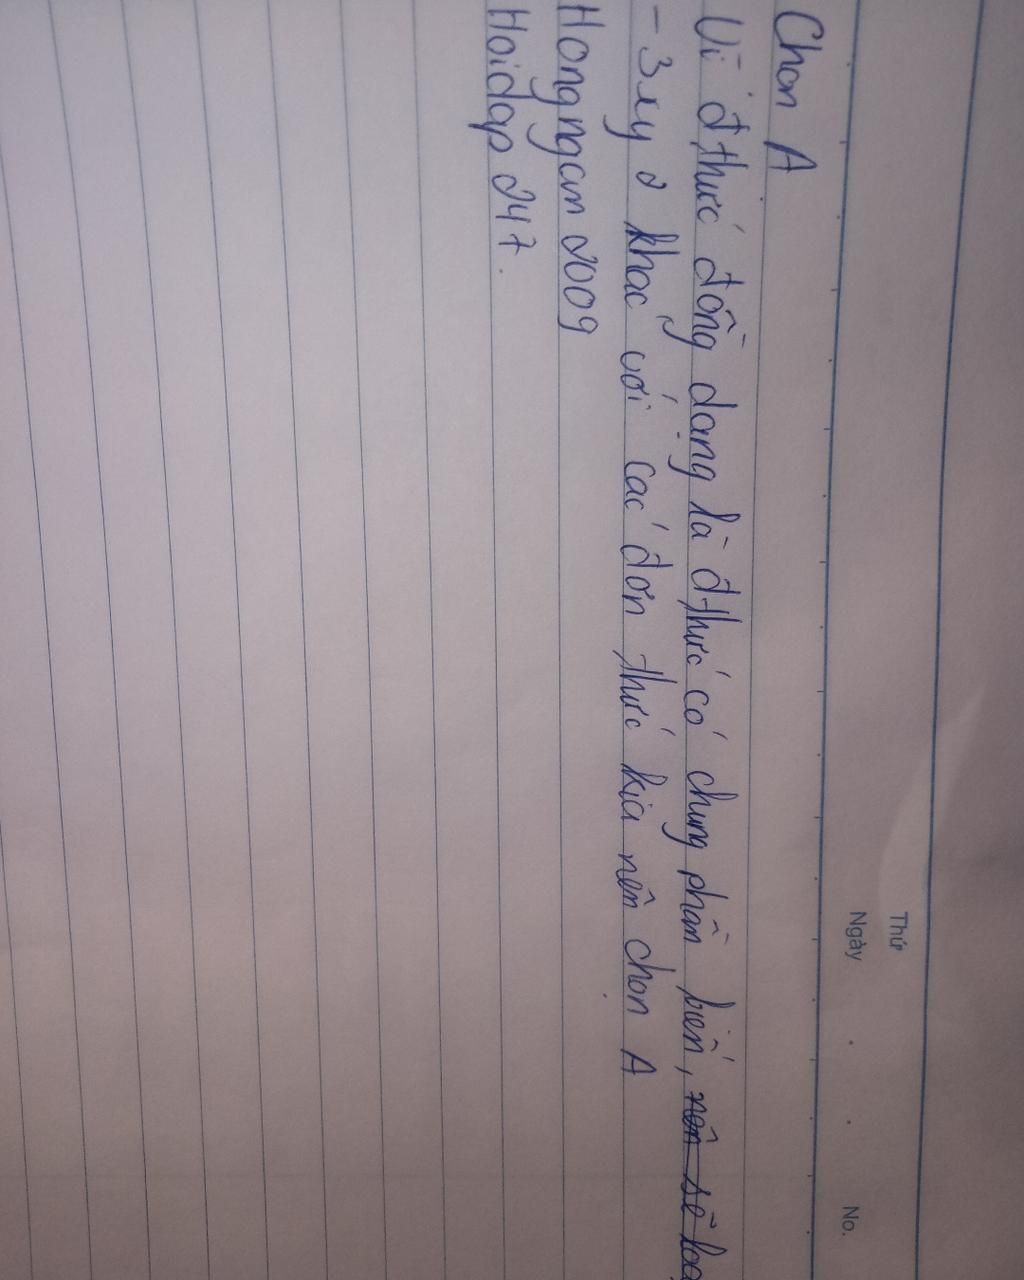 Thứ
Ngày . . No.
Chọn A
Vì đthức đồng dạng là đthức có chung phần biến, nên sẽ loạ
- 3xy2 khác với các đơn thức kia nên chọn A
Hongngan2009
Hoidap247.